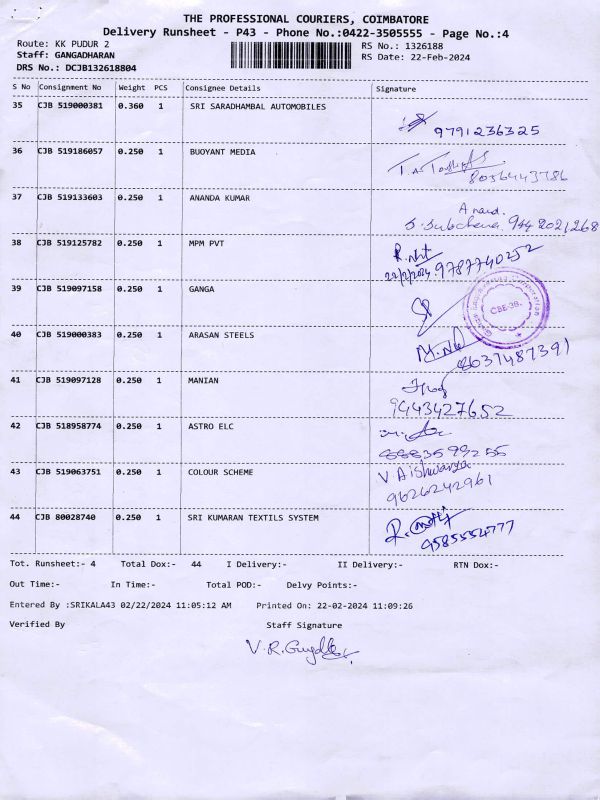 THE PROFESSIONAL COURIERS, COIMBATORE
Delivery Runsheet - P43 - Phone No.:0422-3505555 - Page No.:4
Route: KK PUDUR 2
RS No.: 1326188
Staff: GANGADHARAN
RS Date: 22-Feb-2024
DRS No.: DCJB132618804
S No Consignment No Weight PCS Consignee Details Signature
35 CJB 519000381 0.360 1 SRI SARADHAMBAL AUTOMOBILES
9791236325
36 CJB 519186057 0.250 1 BUOYANT MEDIA
8056443786
37 CJB 519133603 0.250 1 ANANDA KUMAR
Anand.
38 CJB 519125782 0.250 1 MPM PVT
22/2/2024. 9787740252
39 CJB 519097158 0.250 1 GANGA
CBE-38.
40 CJB 519000383 0.250 1 ARASAN STEELS
8637487391
41 CJB 519097128 0.250 1 MANIAN
9443427652
42 CJB 518958774 0.250 1 ASTRO ELC
43 CJB 519063751 0.250 1 COLOUR SCHEME
V. Aishwarya
9626242961
44 CJB 80028740 0.250 1 SRI KUMARAN TEXTILS SYSTEM
9585554777
Tot. Runsheet:- 4 Total Dox:- 44 I Delivery:- II Delivery:- RTN Dox:-
Out Time:- In Time:- Total POD:- Delvy Points:-
Entered By :SRIKALA43 02/22/2024 11:05:12 AM Printed On: 22-02-2024 11:09:26
Verified By Staff Signature